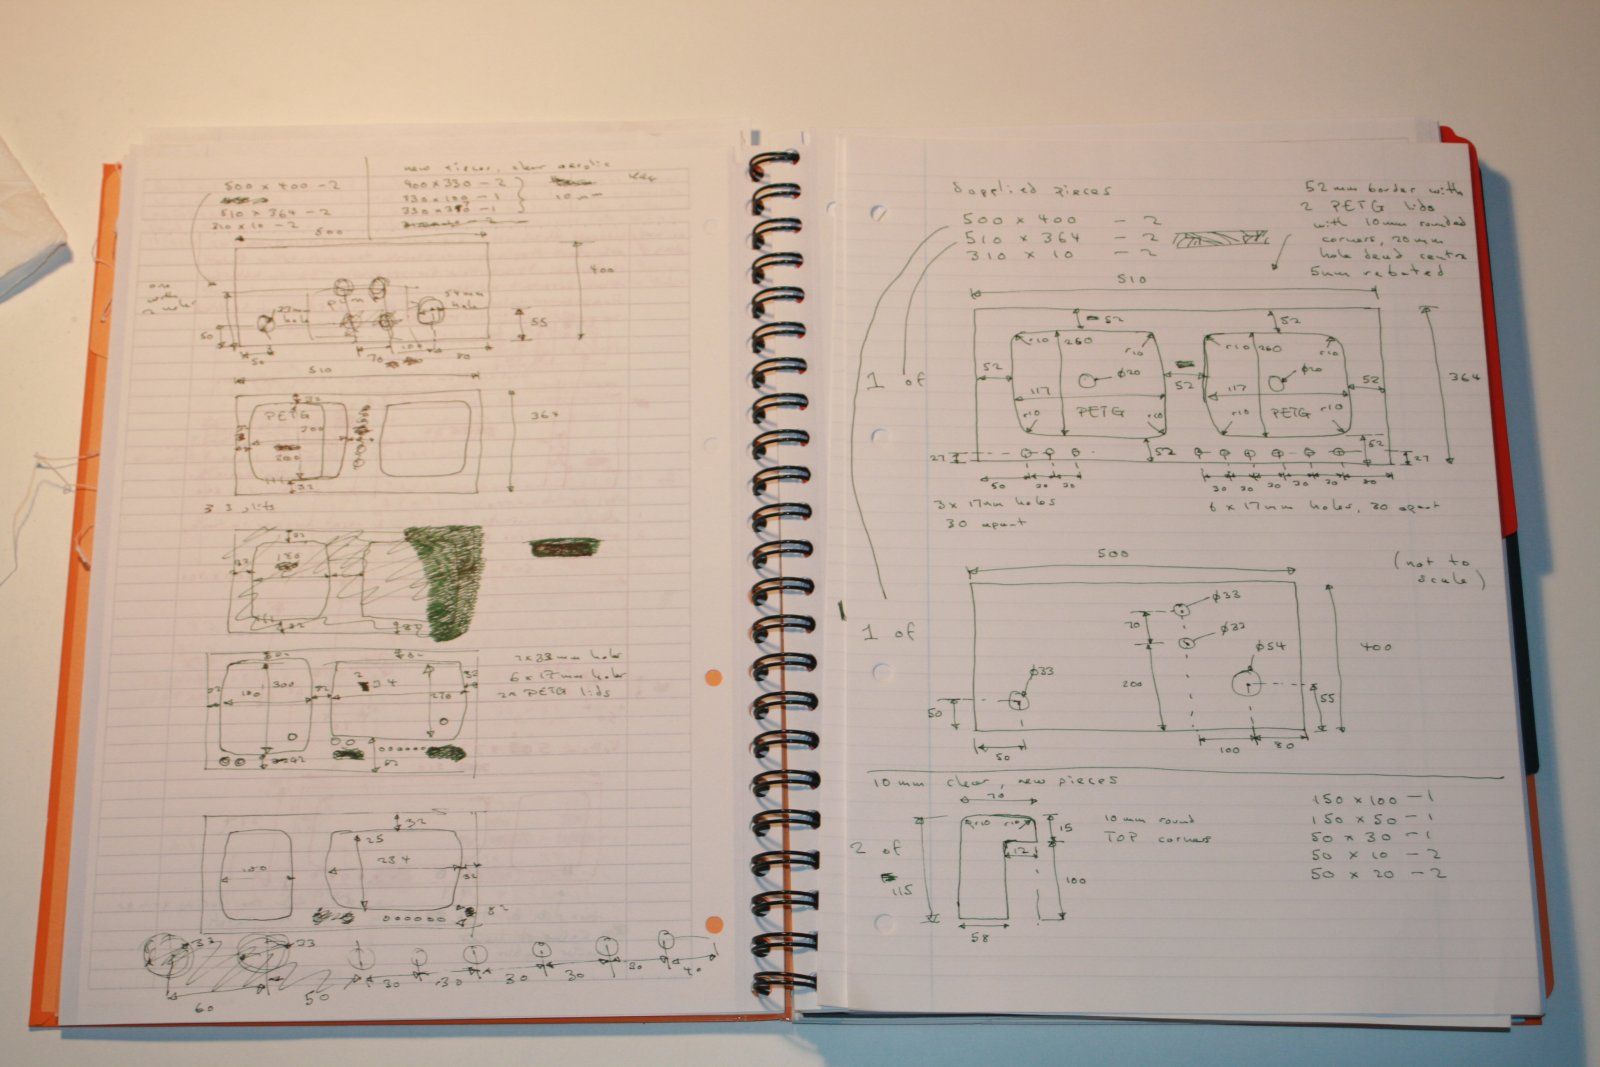 500 × 400 - 2
510 × 364 - 2
310 × 10 - 2
new pieces, clear acrylic
400 × 330 - 2
330 × 100 - 1
10mm
500
400
hole
54mm
hole
55
50
50
70
100
80
510
364
PETG
200
32
32
180
32
2 x 33mm holes
6 x 17mm holes
2x PETG lids
100
300
52
270
52
32
100
25
234
32
52
33
33
60
50
30
30
30
30
30
40
Supplied pieces
500 × 400 - 2
510 × 364 - 2
310 × 10 - 2
52mm border with
2 PETG lids
with 10mm rounded
corners, 20mm
hole dead centre
5mm rebated
510
52
52
r10
260
r10
r10
260
r10
1 of
52
ϕ20
52
ϕ20
52
364
117
117
r10
PETG
r10
r10
PETG
r10
27
52
52
27
50
30
30
30
30
30
30
30
30
3 x 17mm holes
30 apart
6 x 17mm holes, 30 apart
500
(not to
scale)
1 of
ϕ33
70
ϕ33
ϕ54
400
ϕ33
200
50
55
50
100
80
10mm clear, new pieces
70
2 of
115
r10
r10
15
12
100
58
10mm round
TOP corners
150 × 100 - 1
150 × 50 - 1
50 × 30 - 1
50 × 10 - 2
50 × 20 - 2